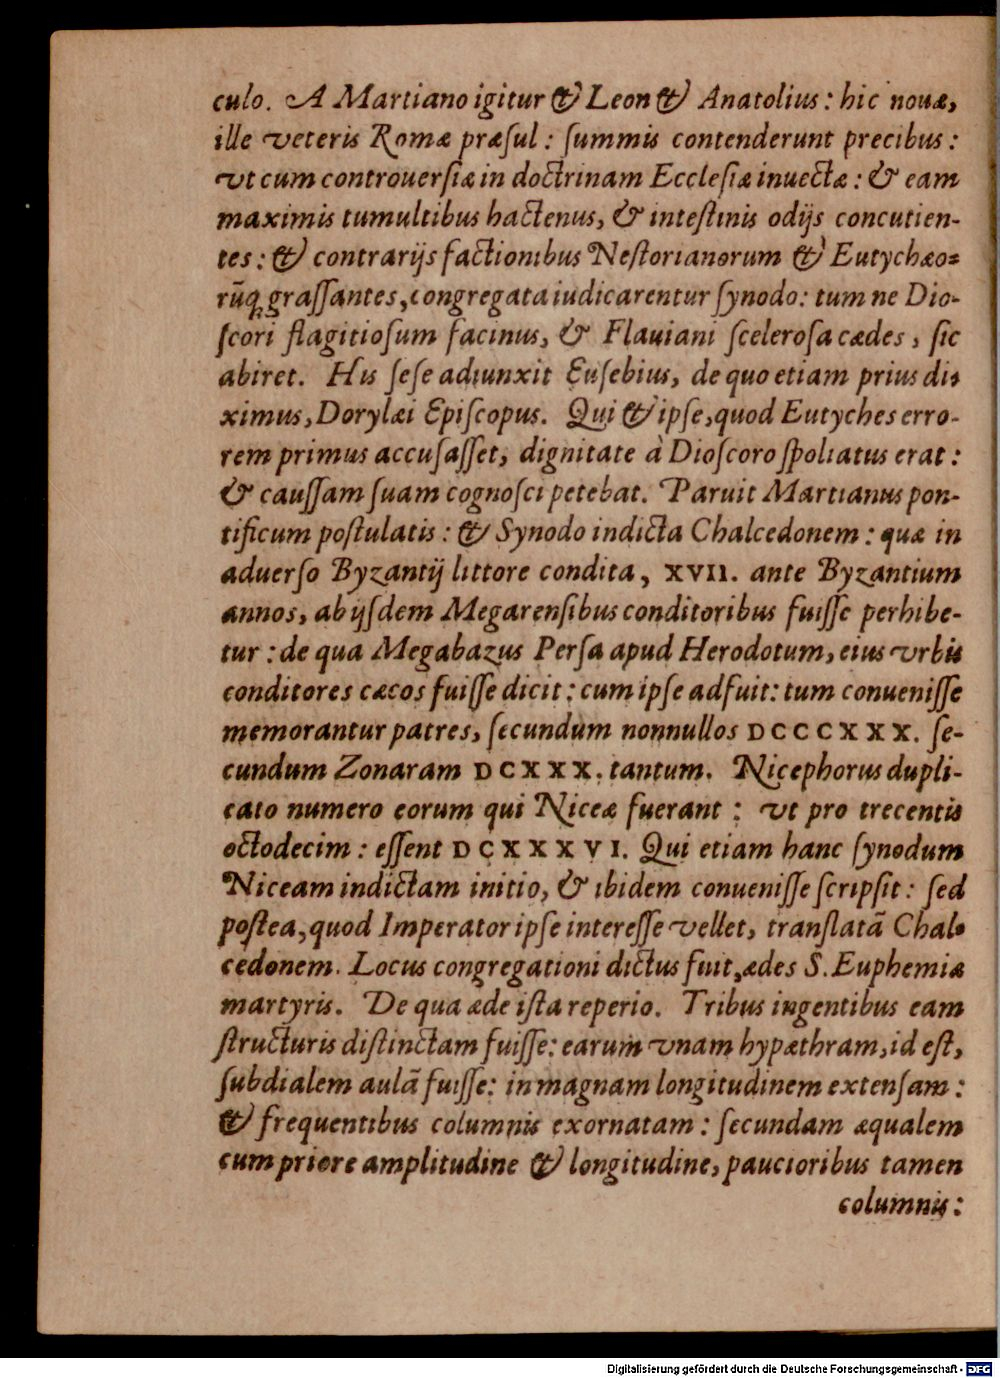 culo. A Martiano igitur & Leon & Anatolius: hic nouæ,
ille veteris Romæ præſul: ſummis contenderunt precibus:
vt cum controuerſiæ in doctrinam Eccleſiæ inuectæ: & eam
maximis tumultibus hactenus, & inteſtinis odijs concutien-
tes: & contrarijs factionibus Neſtorianorum & Eutychæo-
rūq; graſſantes, congregata iudicarentur ſynodo: tum ne Dio-
ſcori flagitioſum facinus, & Flauiani ſceleroſa cædes, ſic
abiret. His ſeſe adiunxit Euſebius, de quo etiam prius di-
ximus, Dorylæi Epiſcopus. Qui & ipſe, quod Eutyches erro-
rem primus accuſaſſet, dignitate à Dioſcoro ſpoliatus erat:
& cauſſam ſuam cognoſci petebat. Paruit Martianus pon-
tificum poſtulatis: & Synodo indicta Chalcedonem: quæ in
aduerſo Byzantij littore condita, XVII. ante Byzantium
annos, ab ijſdem Megarenſibus conditoribus fuiſſe perhibe-
tur: de qua Megabazus Perſa apud Herodotum, eius vrbis
conditores cæcos fuiſſe dicit: cum ipſe adfuit: tum conueniſſe
memorantur patres, ſecundum nonnullos DCCCXXX. ſe-
cundum Zonaram DCXXX. tantum. Nicephorus dupli-
cato numero eorum qui Niceæ fuerant: vt pro trecentis
octodecim: eſſent DCXXXVI. Qui etiam hanc ſynodum
Niceam indictam initio, & ibidem conueniſſe ſcripſit: ſed
poſtea, quod Imperator ipſe intereſſe vellet, tranſlatā Chal-
cedonem. Locus congregationi dictus fuit, ædes S. Euphemiæ
martyris. De qua æde iſta reperio. Tribus ingentibus eam
ſtructuris diſtinctam fuiſſe: earum vnam hypæthram, id eſt,
ſubdialem aulā fuiſſe: in magnam longitudinem extenſam:
& frequentibus columnis exornatam: ſecundam æqualem
cum priore amplitudine & longitudine, paucioribus tamen
columnis:
Digitalisierung gefördert durch die Deutsche Forschungsgemeinschaft - DFG